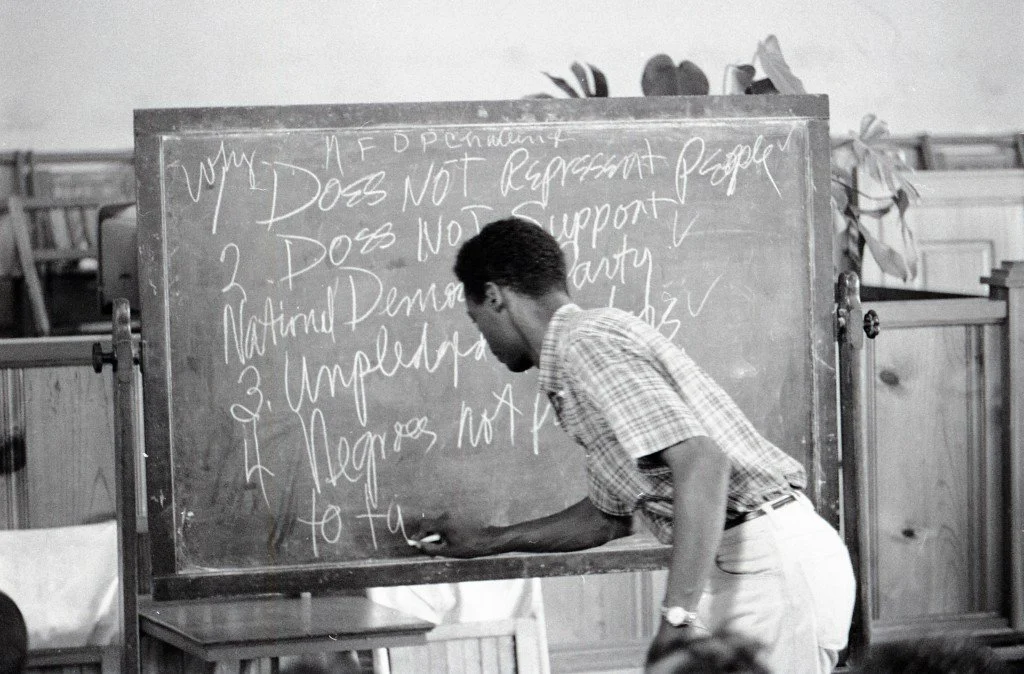 Why MFDP Challenge
Does Not Represent People ✓
2. Does Not Support
National Democ Party ✓
3. Unpledged ✓
4 Negroes not p
to ta